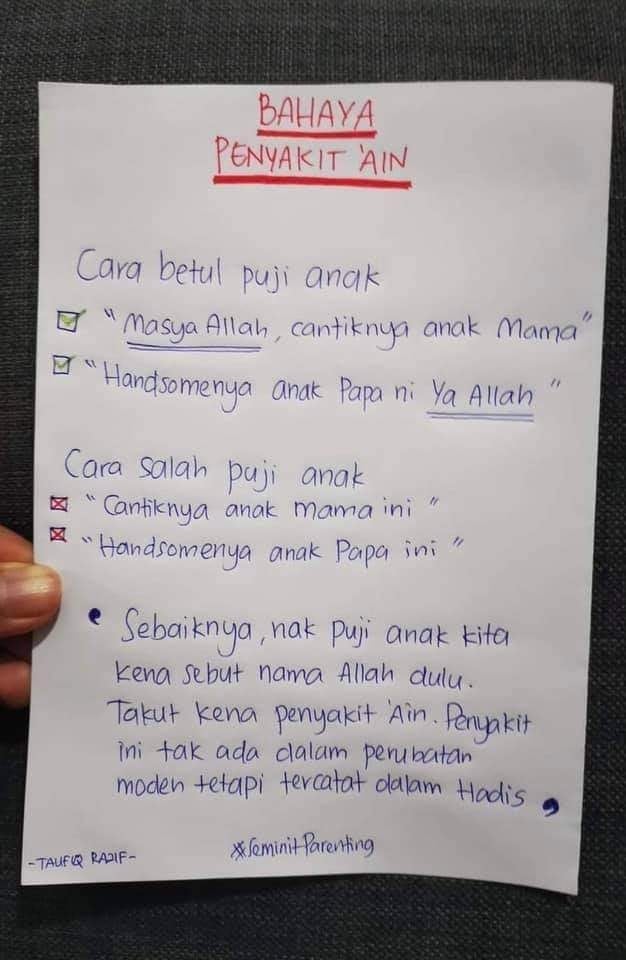 BAHAYA
PENYAKIT 'AIN
Cara betul puji anak
"Masya Allah, cantiknya anak Mama"
"Handsomenya anak Papa ni Ya Allah"
Cara salah puji anak
"Cantiknya anak mama ini"
"Handsomenya anak Papa ini"
Sebaiknya, nak puji anak kita
kena sebut nama Allah dulu.
Takut kena penyakit 'Ain. Penyakit
ini tak ada dalam perubatan
moden tetapi tercatat dalam Hadis
#SeminitParenting
-TAUFIQ RAZIF-